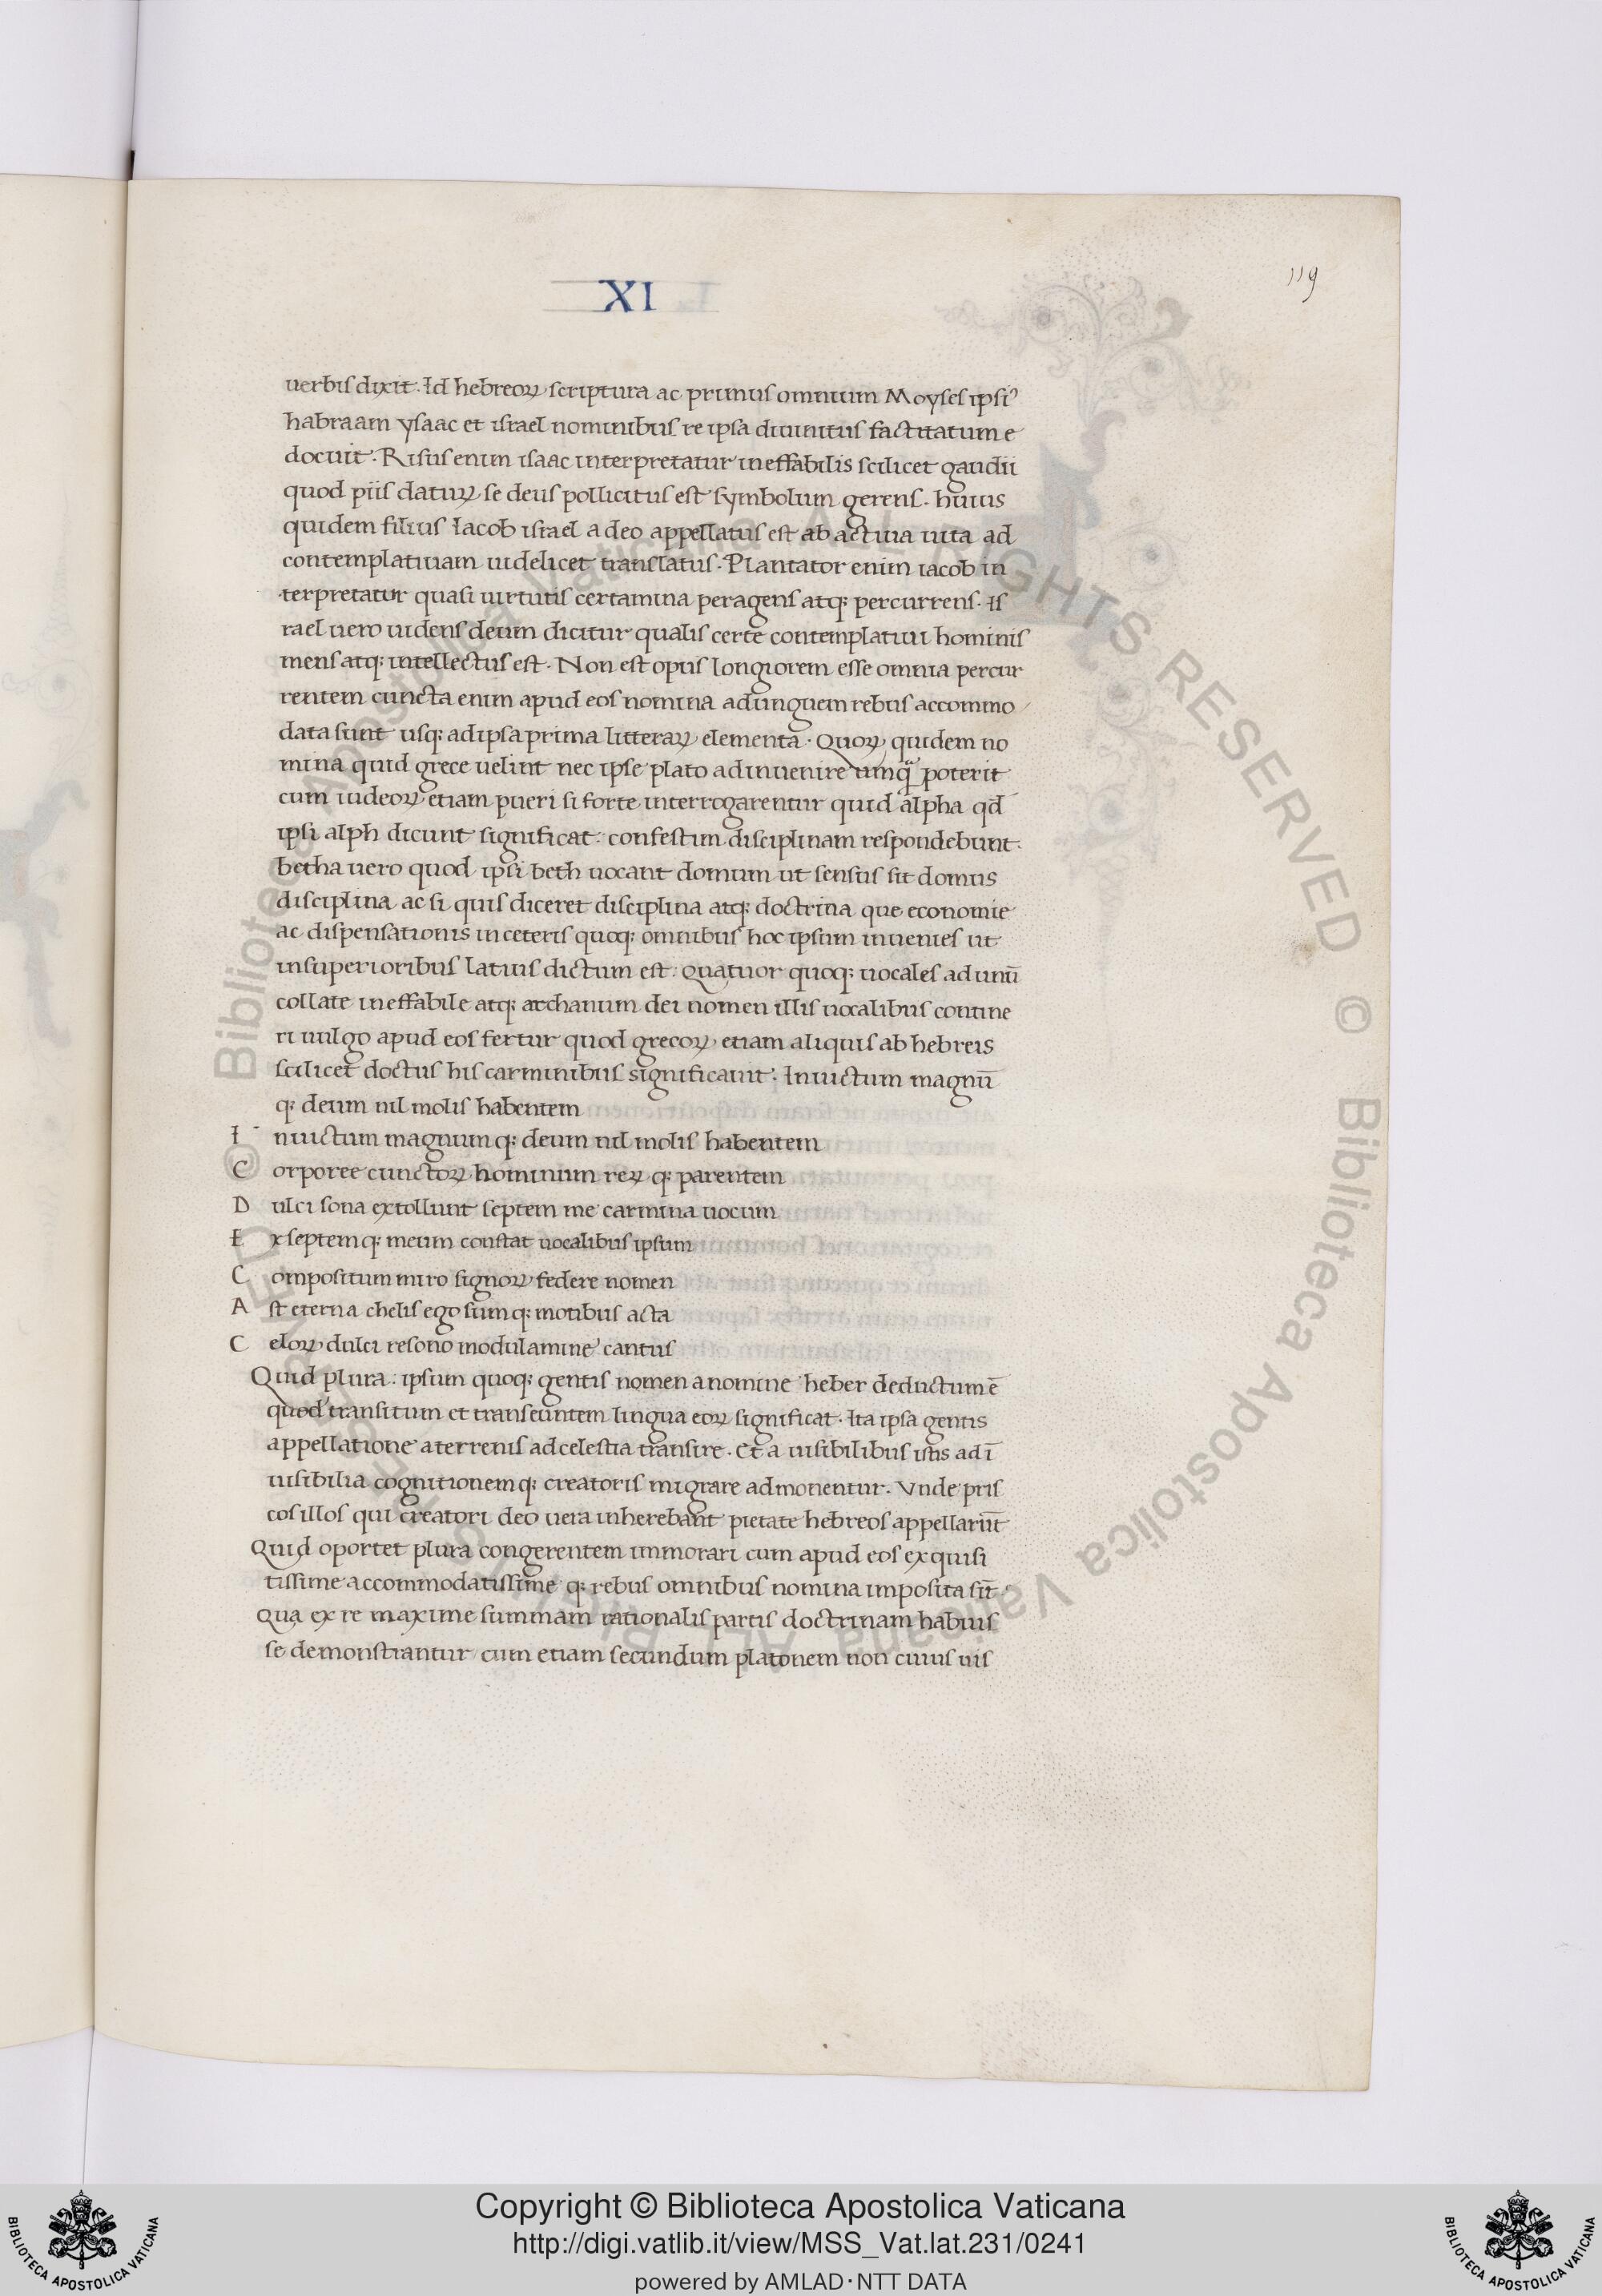 XI
119
uerbis dixit. Id hebreoꝝ scriptura ac primus omnium Moyses ipsiꝰ
habraam ysaac et israel nominibus re ipsa diuinitus factitatum e
docuit. Risus enim isaac interpretatur ineffabilis scilicet gaudii
quod piis datuꝝ se deus pollicitus est symbolum gerens. huius
quidem filius Iacob israel a deo appellatus est ab actiua uita ad
contemplatiuam uidelicet translatus. Plantator enim iacob in
terpretatur quasi uirtutis certamina peragens atq: percurrens. Is
rael uero uidens deum dicitur qualis certe contemplatiui hominis
mens atq: intellectus est. Non est opus longiorem esse omnia percur
rentem cuncta enim apud eos nomina adunguem rebus accommo
data sunt usq: ad ipsa prima litteraꝝ elementa. Quoꝝ quidem no
mina quid grece uelint nec ipse plato adinuenire umq̃ poterit
cum iudeoꝝ etiam pueri si forte interrogarentur quid alpha qd̄
ipsi alph dicunt significat. confestim disciplinam respondebunt.
betha uero quod ipsi beth uocant domum ut sensus sit domus
disciplina ac si quis diceret disciplina atq: doctrina que economie
ac dispensationis in ceteris quoq: omnibus hoc ipsum inuenies ut
in superioribus latius dictum est. Quatuor quoq: uocales ad unū
collate ineffabile atq: archanum dei nomen illis uocalibus contine
ri uulgo apud eos fertur quod grecoꝝ etiam aliquis ab hebreis
scilicet doctus his carminibus significauit. Inuictum magnū
q: deum nil molis habentem
I nuictum magnum q: deum nil molis habentem
C orporee cunctoꝝ hominum reꝝ q: parentem
D ulci sona extollunt septem me carmina uocum
E x septem q: meum constat uocalibus ipsum
C ompositum miro signoꝝ federe nomen
A st eterna chelis ego sum q: motibus acta
C eloꝝ dulci resono modulamine cantus
Quid plura. ipsum quoq: gentis nomen a nomine heber deductum ē
quod transitum et transeuntem lingua eoꝝ significat. Ita ipsa gentis
appellatione a terrenis ad celestia transire. Et a uisibilibus istis ad ī
uisibilia cognitionem q: creatoris migrare admonentur. Vnde pris
cos illos qui creatori deo uera inherebant pietate hebreos appellarūt
Quid oportet plura congerentem immorari cum apud eos exquisi
tissime accommodatissime q: rebus omnibus nomina imposita sīt
Qua ex re maxime summam rationalis partis doctrinam habuis
se demonstrantur cum etiam secundum platonem non cuius uis
© Biblioteca Apostolica Vaticana ALL RIGHTS RESERVED © Biblioteca Apostolica Vaticana ALL RIGHTS RESERVED
Copyright © Biblioteca Apostolica Vaticana
http://digi.vatlib.it/view/MSS_Vat.lat.231/0241
powered by AMLAD·NTT DATA
BIBLIOTECA APOSTOLICA VATICANA
BIBLIOTECA APOSTOLICA VATICANA